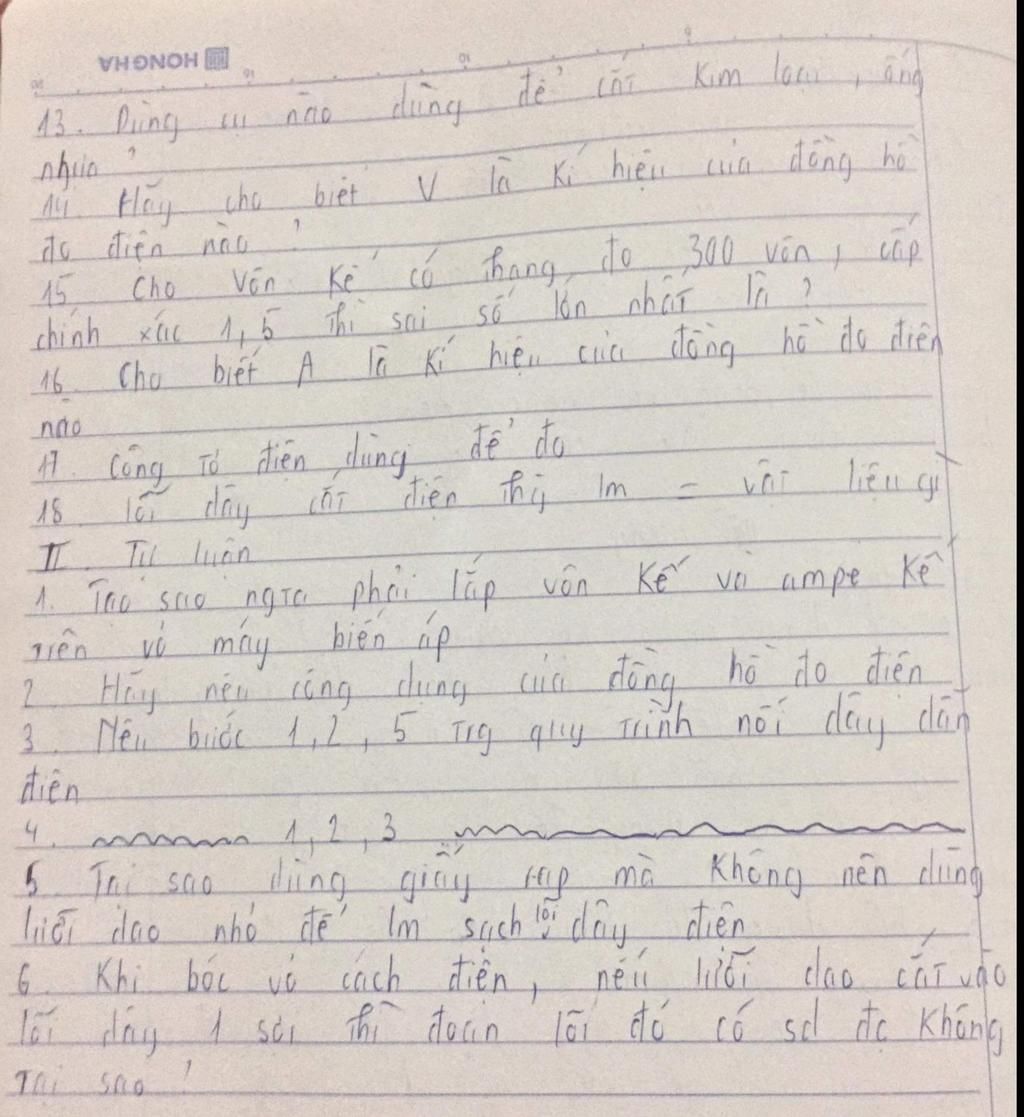 HONGHA
13. Dùng cụ nào dùng để cắt kim loại, ống
nhựa?
14 Hãy cho biết V là kí hiệu của đồng hồ
đo điện nào?
15 Cho vôn kế có thang đo 300 vôn, cấp
chính xác 1,5 thì sai số lớn nhất là?
16 Cho biết A là kí hiệu của đồng hồ đo điện
nào
17. Công tơ điện dùng để đo
18 lõi dây cáp điện thg lm = vật liệu gì
II. Tự luận
1. Tạo sao ngta phải lắp vôn kế và ampe kế
trên vỏ máy biến áp
2 Hãy nêu công dụng của đồng hồ đo điện
3. Nêu bước 1,2,5 trg quy trình nối dây dẫn
điện
4. 1,2,3
5 Tại sao dùng giấy ráp mà không nên dùng
lưỡi dao nhỏ để lm sạch lõi dây điện
6. Khi bóc vỏ cách điện, nếu lưỡi dao cắt vào
lõi dây 1 sợi thì đoạn lõi đó có sd đc không
Tại sao?